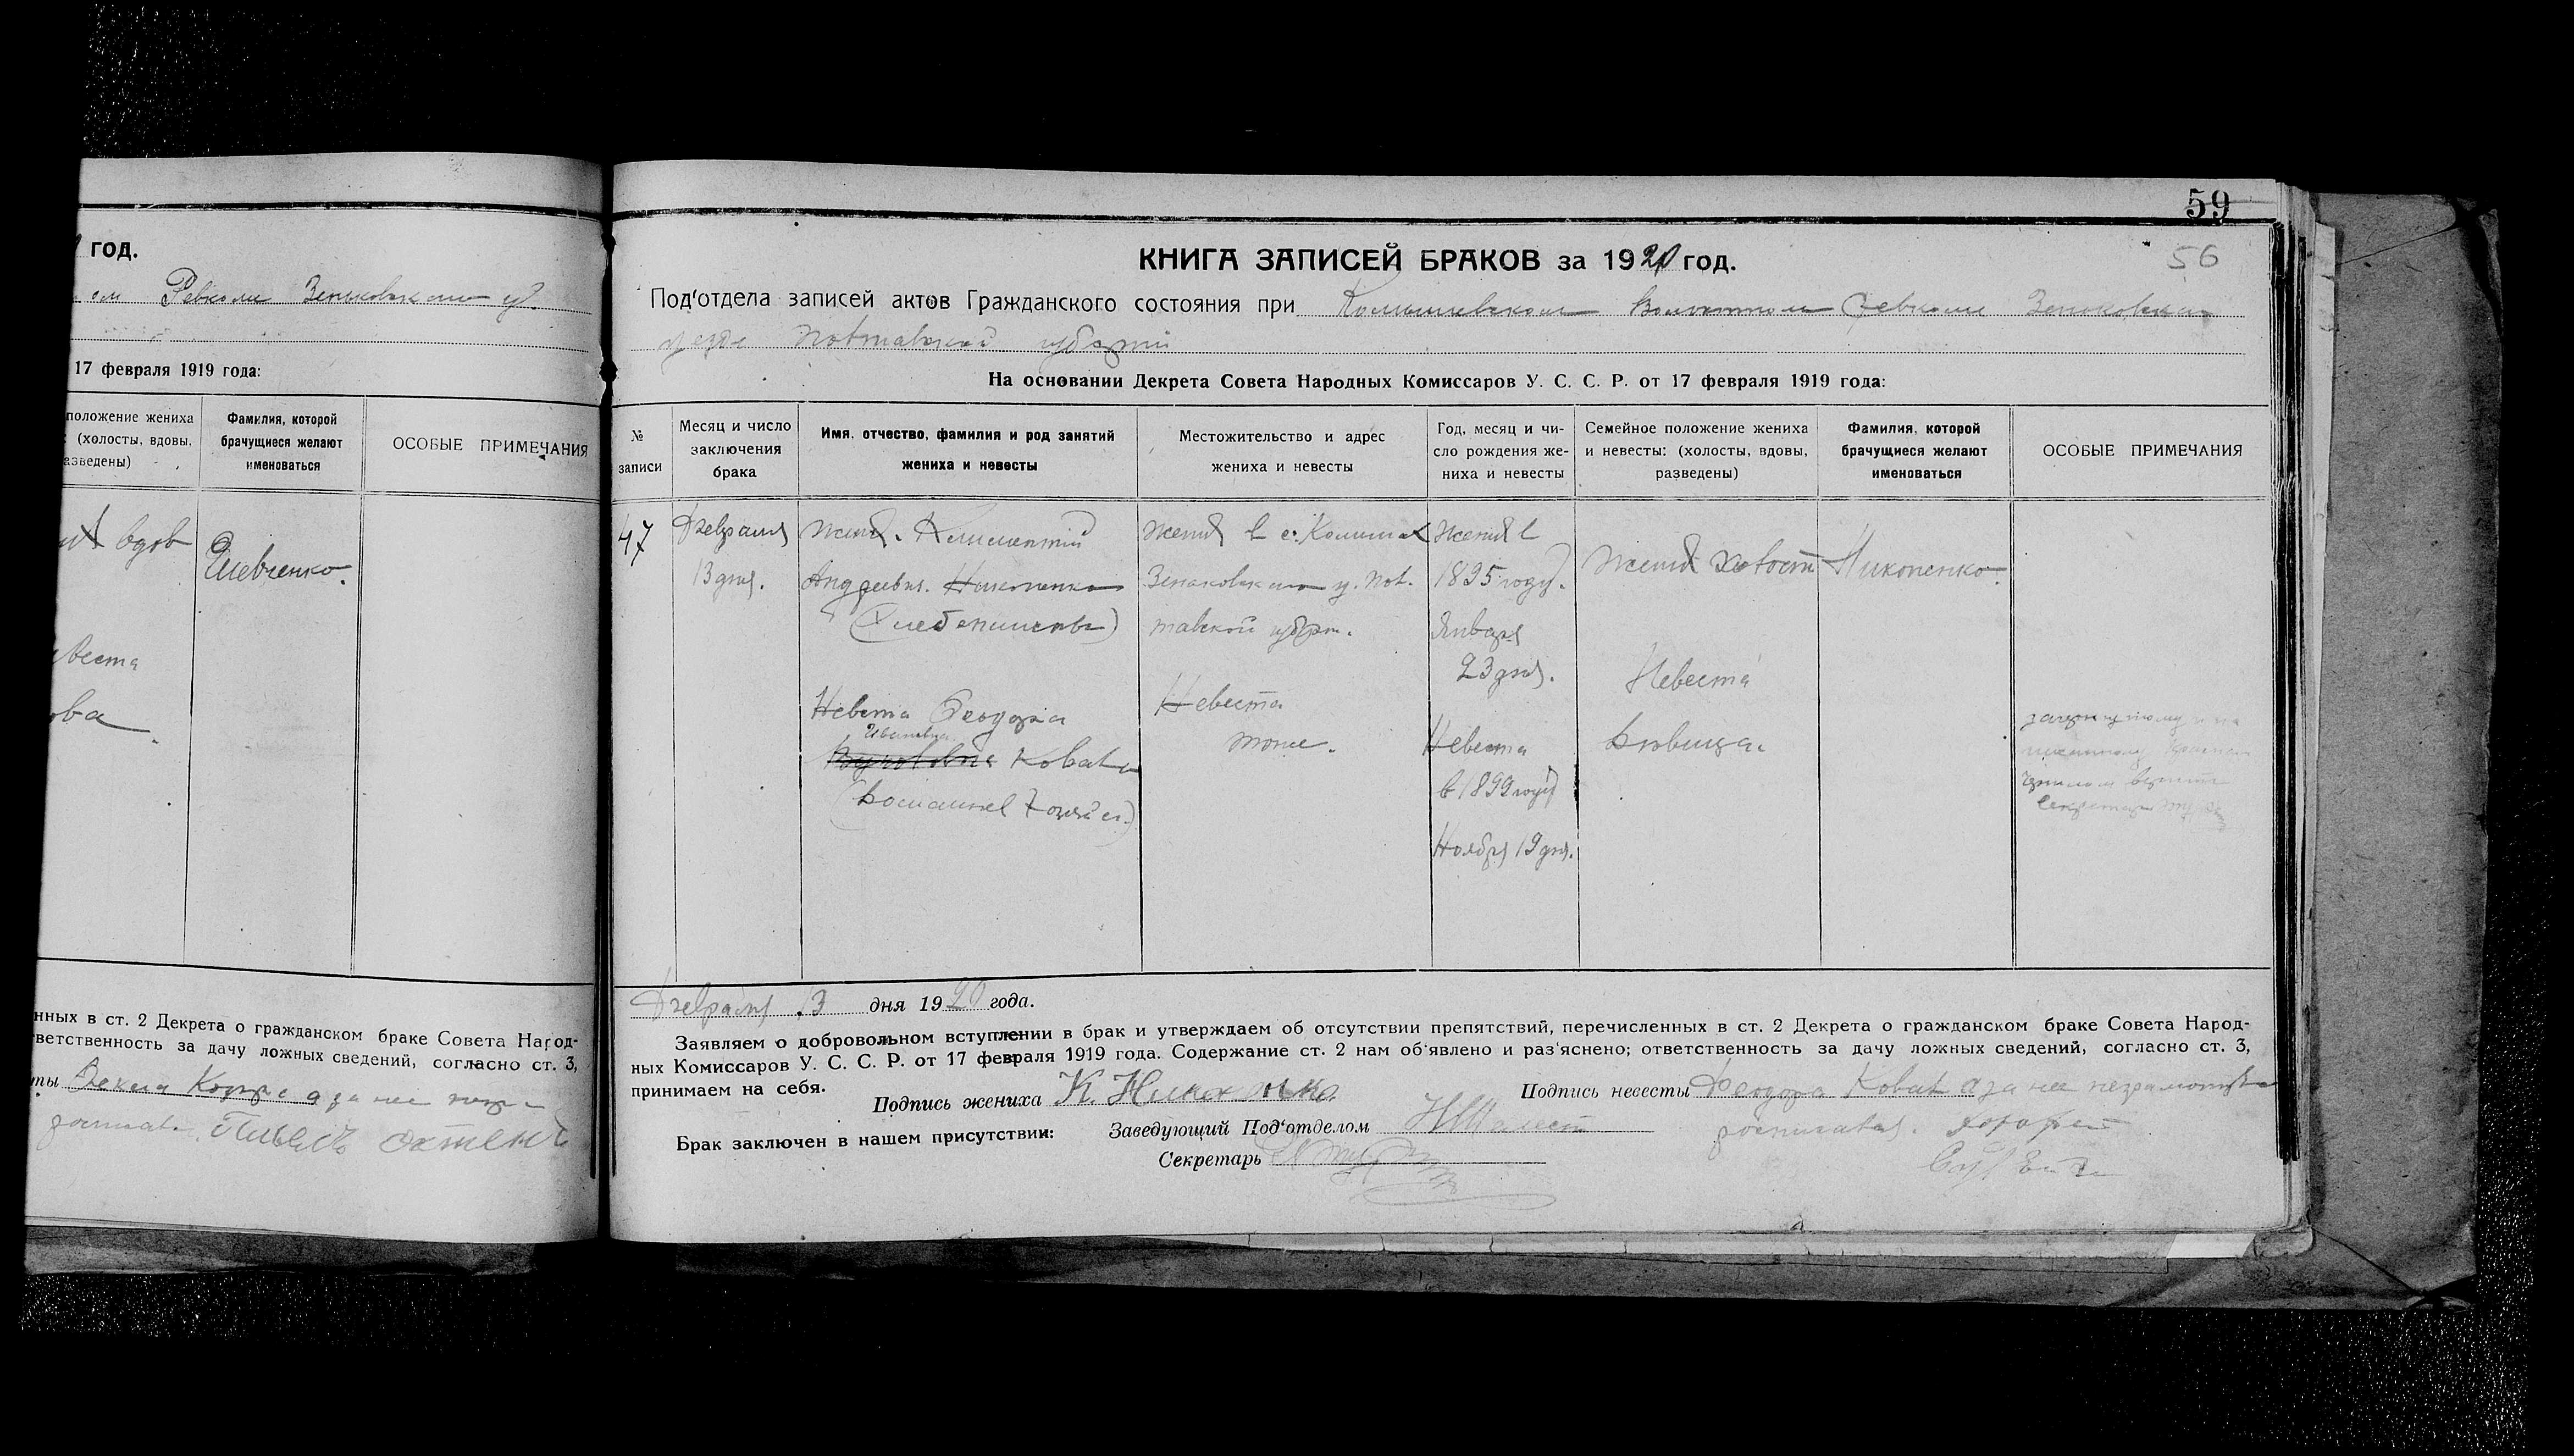 год.
Ревкоме Зеньковском у.
17 февраля 1919 года:
положение жениха
(холосты, вдовы,
разведены)
Фамилия, которой
брачущиеся желают
именоваться
ОСОБЫЕ ПРИМЕЧАНИЯ
вдов
Шевченко.
веста
ова
нных в ст. 2 Декрета о гражданском браке Совета Народ-
ветственность за дачу ложных сведений, согласно ст. 3,
ты
59
56
КНИГА ЗАПИСЕЙ БРАКОВ за 1920 год.
Под'отдела записей актов Гражданского состояния при Волостном Ревкоме
уезде Полтавской губернии
На основании Декрета Совета Народных Комиссаров У. С. С. Р. от 17 февраля 1919 года:
№
записи
Месяц и число
заключения
брака
Имя, отчество, фамилия и род занятий
жениха и невесты
Местожительство и адрес
жениха и невесты
Год, месяц и чи-
сло рождения же-
ниха и невесты
Семейное положение жениха
и невесты: (холосты, вдовы,
разведены)
Фамилия, которой
брачущиеся желают
именоваться
ОСОБЫЕ ПРИМЕЧАНИЯ
47
Февраля
13 дня.
Жених. Климентий
Андреевич. Никоненко
(Хлебопашевство)
Невеста Феодора
Ивановна
Коваль
(Домашнее Хозяйст.)
Жених в с.
Зеньковского у. Пол-
тавской губерн.
Невеста
тоже.
Жених в
1895 году.
Января
23 дня.
Невеста
в 1899 году
Ноября 19 дня.
Жених Холост
Невеста
Девица.
Никоненко.
Февраля 13 дня 1920 года.
Заявляем о добровольном вступлении в брак и утверждаем об отсутствии препятствий, перечисленных в ст. 2 Декрета о гражданском браке Совета Народ-
ных Комиссаров У. С. С. Р. от 17 февраля 1919 года. Содержание ст. 2 нам об'явлено и раз'яснено; ответственность за дачу ложных сведений, согласно ст. 3,
принимаем на себя.
Подпись жениха К. Никоненко
Подпись невесты Феодора Коваль а за нее неграмотную
росписался.
Брак заключен в нашем присутствии:
Заведующий Под'отделом
Секретарь